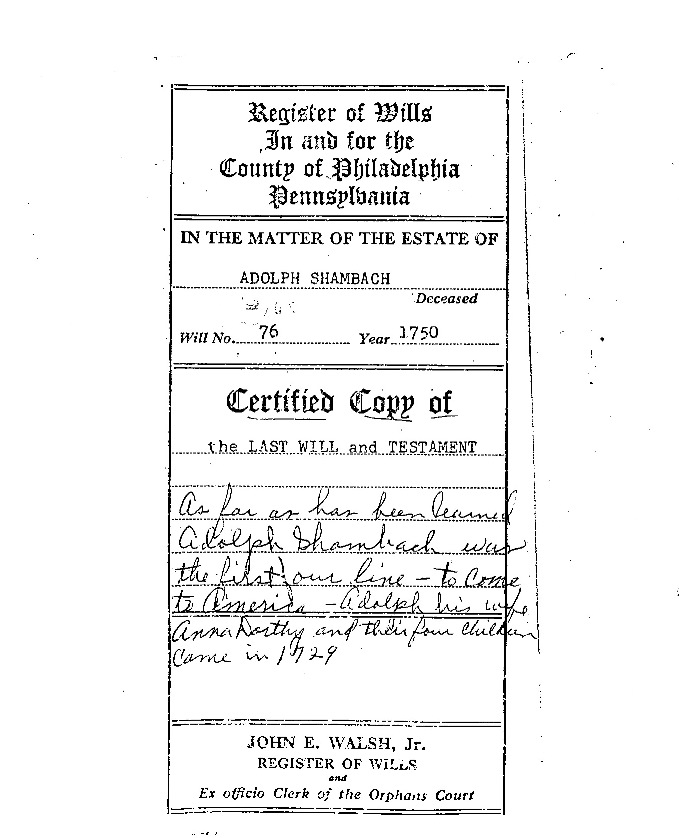 Register of Wills
In and for the
County of Philadelphia
Pennsylvania
IN THE MATTER OF THE ESTATE OF
ADOLPH SHAMBACH
Deceased
Will No. 76 Year 1750
Certified Copy of
the LAST WILL and TESTAMENT
As far as has been learned
Adolph Shambach was
the first our line - to come
to America - Adolph his wife
Anna Dorthy and their four children
came in 1729
JOHN E. WALSH, Jr.
REGISTER OF WILLS
and
Ex officio Clerk of the Orphans Court